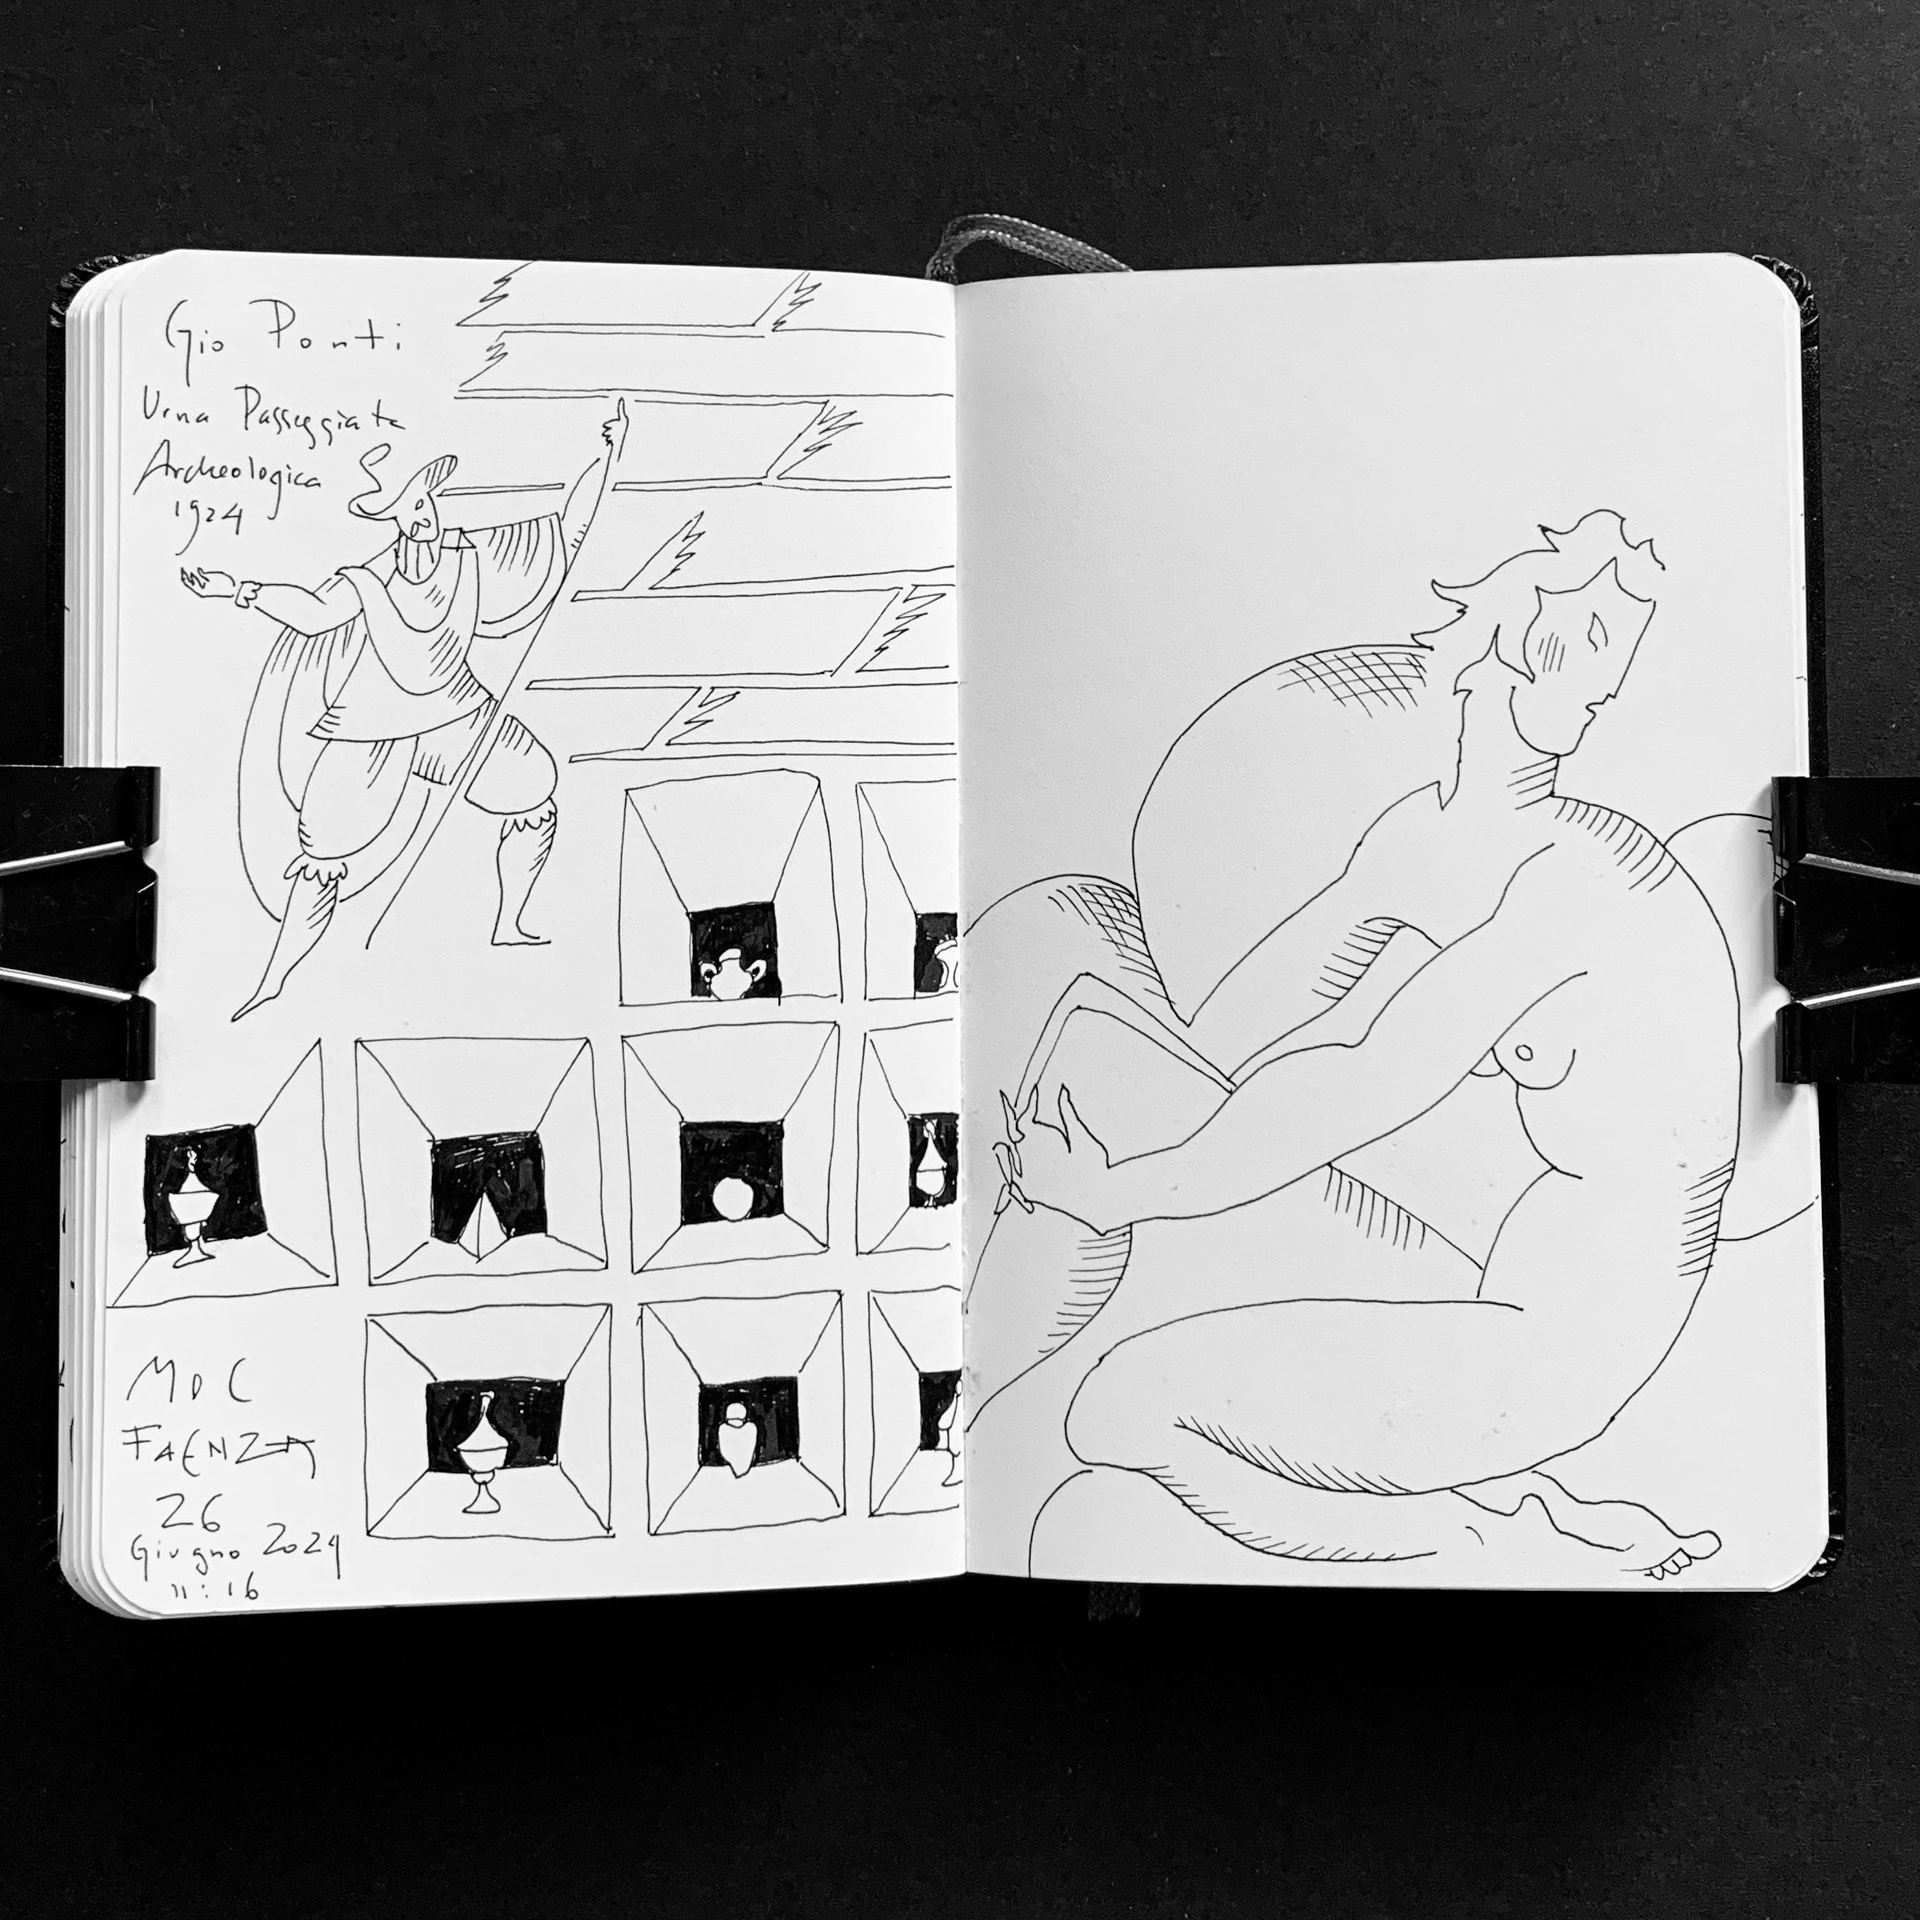 Gio Ponti
Urna Passeggiata
Archeologica
1924
MDC
FAENZA
26
Giugno 2024
11:16